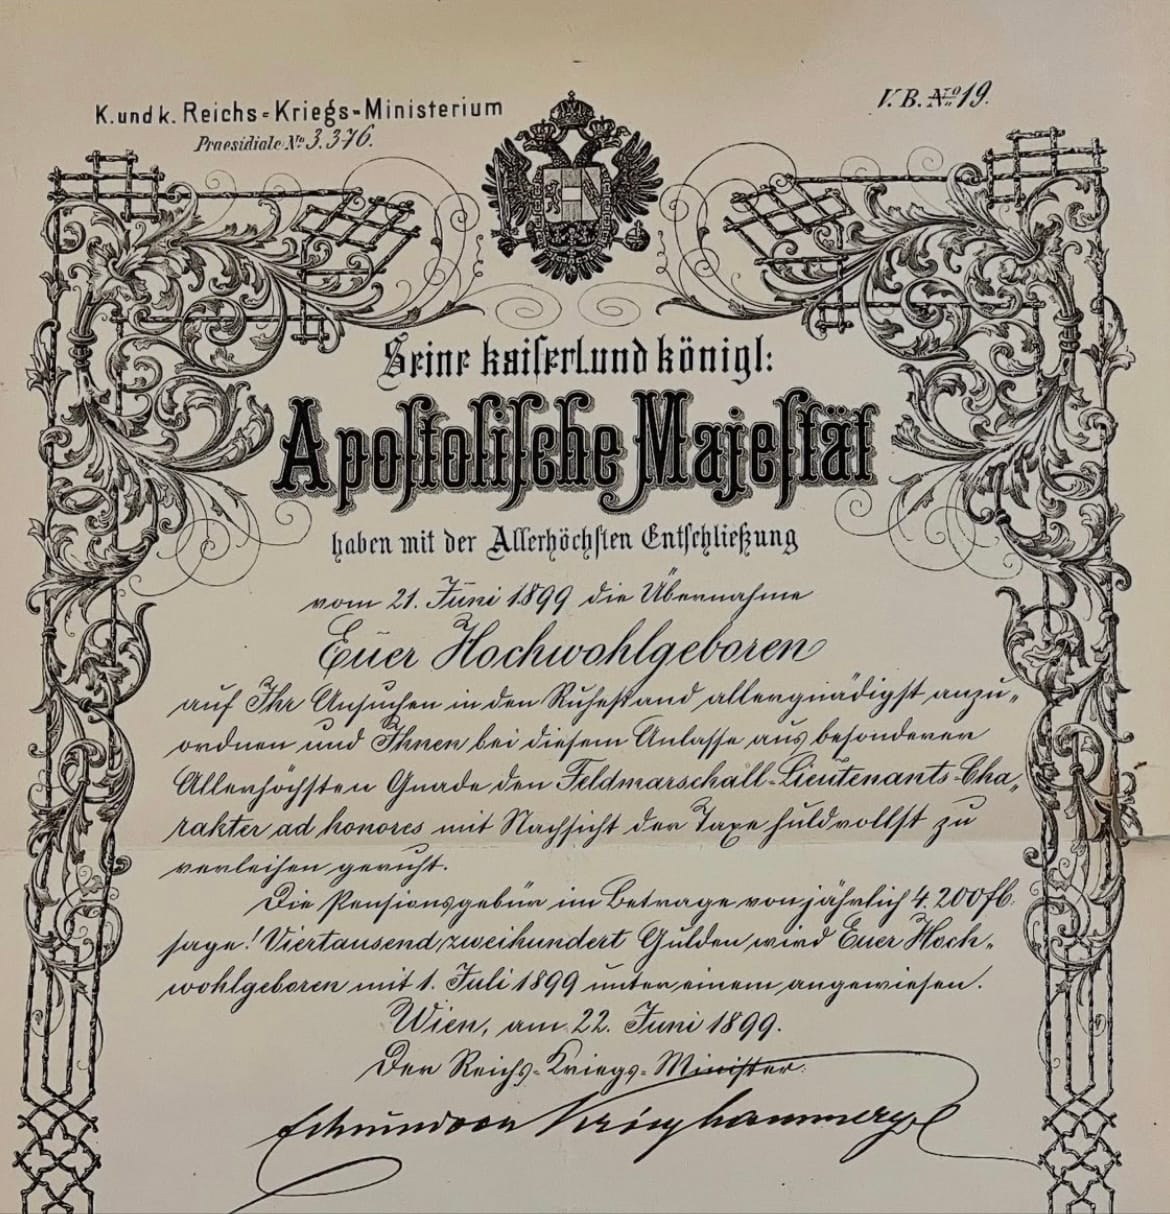 K. und k. Reichs-Kriegs-Ministerium
Praesidiale No 3.376.
V.B. No 19.
Seine kaiserl. und königl:
Apostolische Majestät
haben mit der Allerhöchsten Entschließung
vom 21. Juni 1899 die Übernahme
Euer Hochwohlgeboren
auf Ihr Ansuchen in den Ruhestand allergnädigst anzu-
ordnen und Ihnen bei diesem Anlasse aus besonderer
Allerhöchsten Gnade den Feldmarschall-Lieutenants-Cha-
rakter ad honores mit Nachsicht der Taxe huldvollst zu
verleihen geruht.
Die Pensionsgebür im Betrage von jährlich 4.200 fl.
sage! Viertausend zweihundert Gulden wird Euer Hoch-
wohlgeboren mit 1. Juli 1899 unter einem angewiesen.
Wien, am 22. Juni 1899.
Der Reichs-Kriegs-Minister: